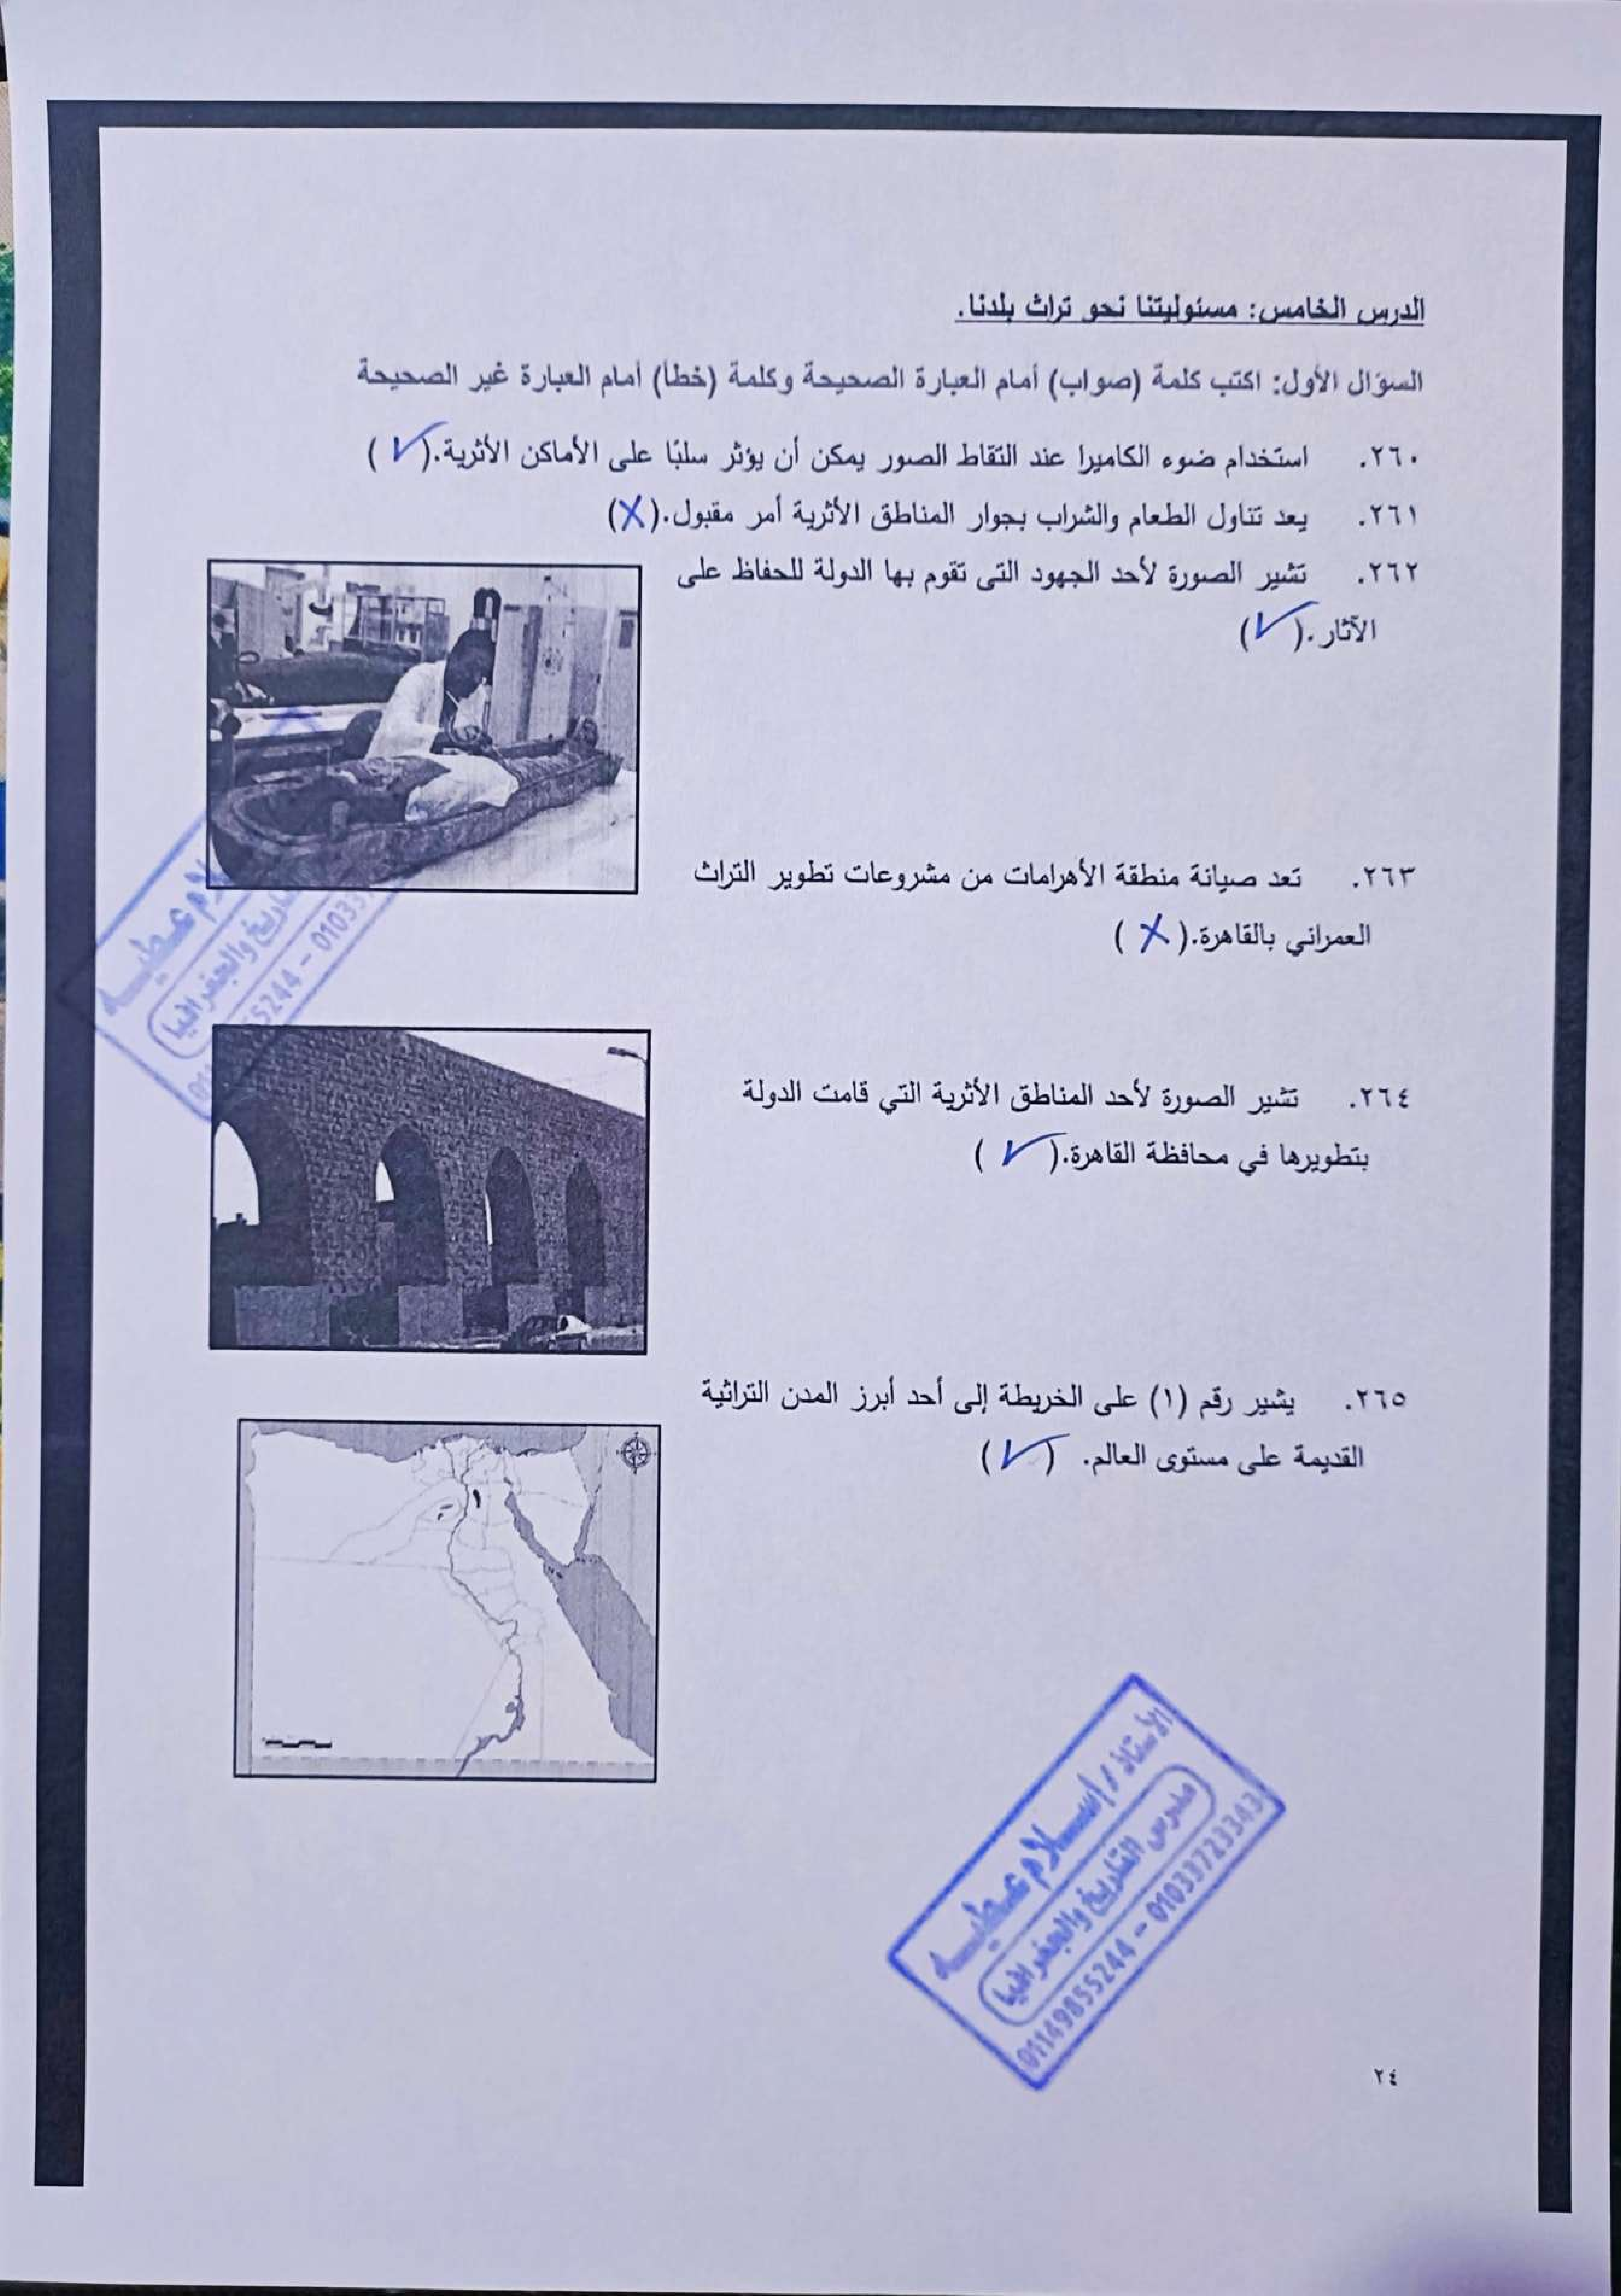 الدرس الخامس: مسئوليتنا نحو تراث بلدنا.
السؤال الأول: اكتب كلمة (صواب) أمام العبارة الصحيحة وكلمة (خطأ) أمام العبارة غير الصحيحة
٢٦٠. استخدام ضوء الكاميرا عند التقاط الصور يمكن أن يؤثر سلبًا على الأماكن الأثرية.(✓)
٢٦١. يعد تناول الطعام والشراب بجوار المناطق الأثرية أمر مقبول.(X)
٢٦٢. تشير الصورة لأحد الجهود التى تقوم بها الدولة للحفاظ على
الآثار.(✓)
٢٦٣. تعد صيانة منطقة الأهرامات من مشروعات تطوير التراث
العمراني بالقاهرة.(X)
٢٦٤. تشير الصورة لأحد المناطق الأثرية التي قامت الدولة
بتطويرها في محافظة القاهرة.(✓)
٢٦٥. يشير رقم (١) على الخريطة إلى أحد أبرز المدن التراثية
القديمة على مستوى العالم. (✓)
١
الأستاذ / إسلام عطيه
مدرس التاريخ والجغرافيا
01149855244 - 01033723343
٢٤